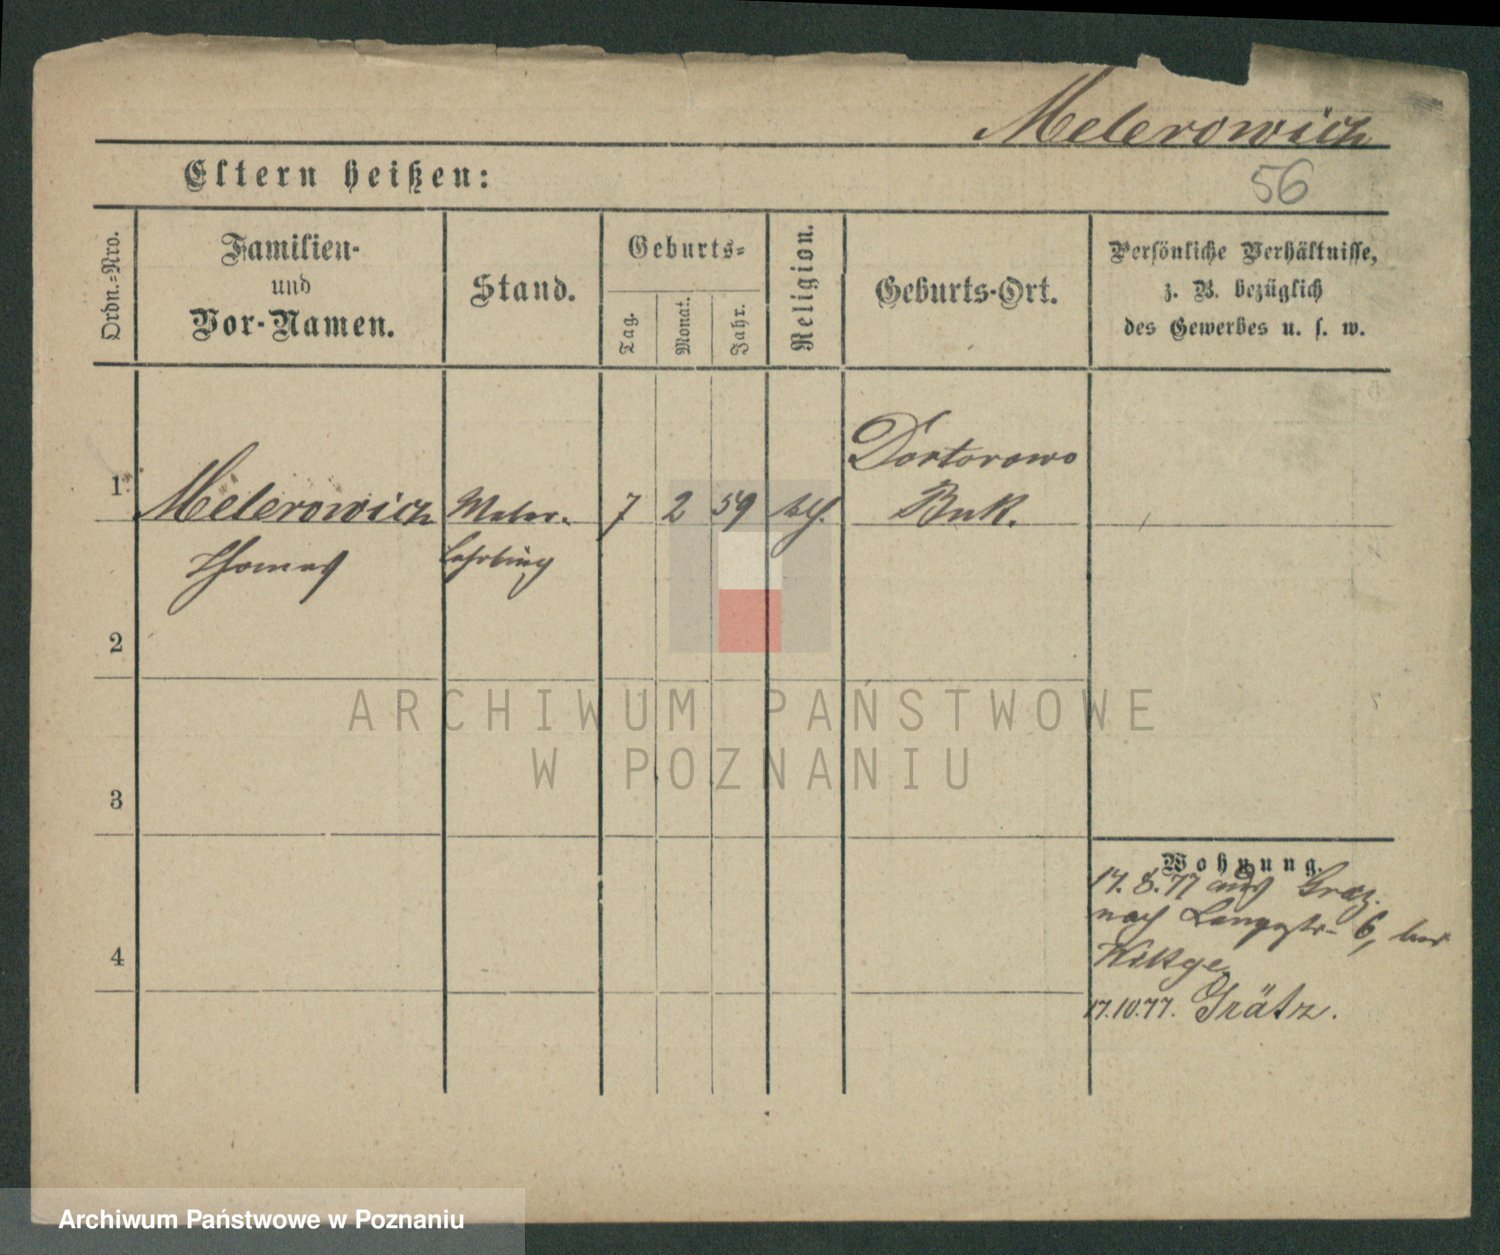 Melerowicz
56
Eltern heißen:
Ordn.-Nro.
Familien-
und
Vor-Namen.
Stand.
Geburts-
Tag.
Monat.
Jahr.
Religion.
Geburts-Ort.
Persönliche Verhältnisse,
z. B. bezüglich
des Gewerbes u. s. w.
Doktorowo
1 Melerowicz Maler- 7 2 59 kth. Buk.
Thomas lehrling
2
3
4
ARCHIWUM PAŃSTWOWE
W POZNANIU
Wohnung.
17. 8. 77 aus Graez.
nach Langestr. 6, bei
17.10.77. Grätz.
Archiwum Państwowe w Poznaniu